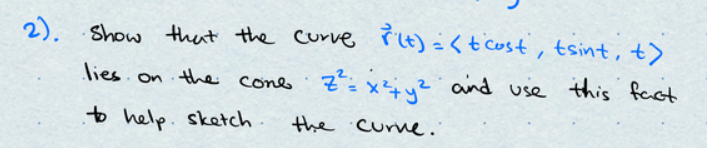 2). Show that the curve r⃗(t) = < t cost, tsint, t>
lies on the cone z² = x²+y² and use this fact
to help sketch the curve.